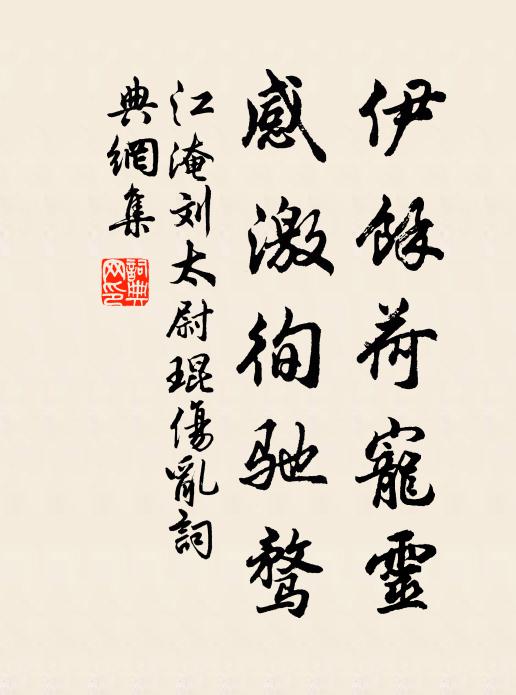 伊餘荷寵靈
感激徇驰骛
江淹刘太尉琨傷亂詞
典網集
詞典網印